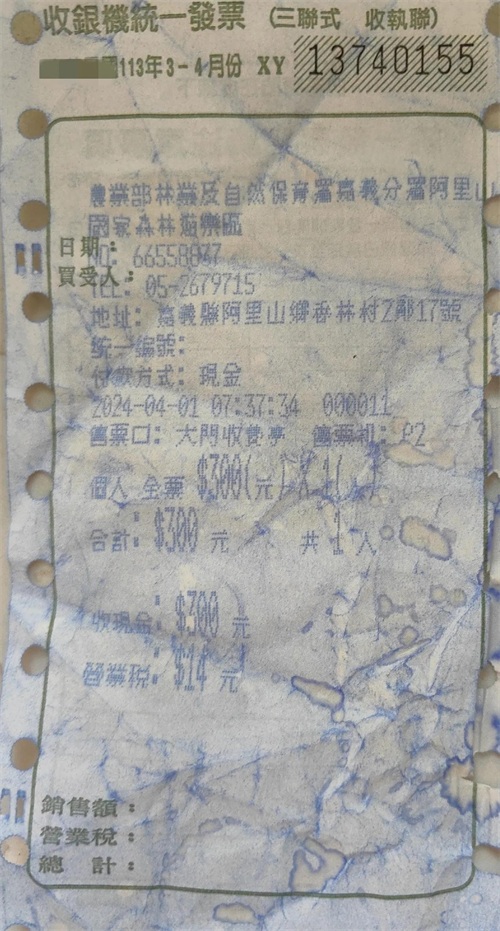 收銀機統一發票 (三聯式 收執聯)
113年3-4月份 XY 13740155
農業部林業及自然保育署嘉義分署阿里山
國家森林遊樂區
日期:
NO: 66558837
買受人:
TEL: 05-2679715
地址: 嘉義縣阿里山鄉香林村2鄰17號
統一編號:
付款方式: 現金
2024-04-01 07:37:34 000011
售票口: 大門收費亭 售票機: P2
個人 全票 $300(元) X 1(人)
合計: $300 元 共 1 人
收現金: $300 元
營業稅: $14 元
銷售額:
營業稅:
總 計: